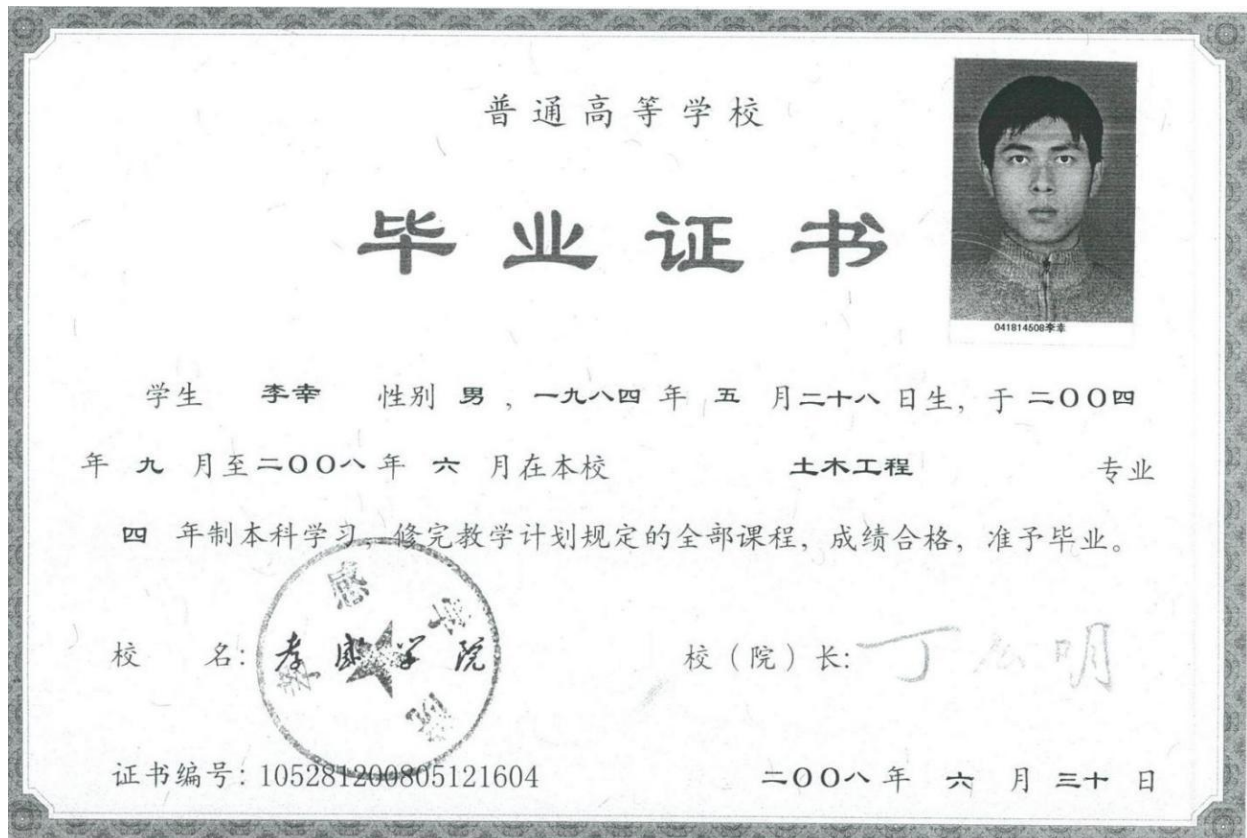 普通高等学校
毕业证书
041814508李幸
学生 李幸 性别 男，一九八四 年 五 月二十八 日生，于 二〇〇四
年 九 月至二〇〇八 年 六 月在本校 土木工程 专业
四 年制本科学习，修完教学计划规定的全部课程，成绩合格，准予毕业。
校 名：孝感学院
孝感学院
校（院）长：丁 明
证书编号：105281200805121604
二〇〇八 年 六 月 三十 日